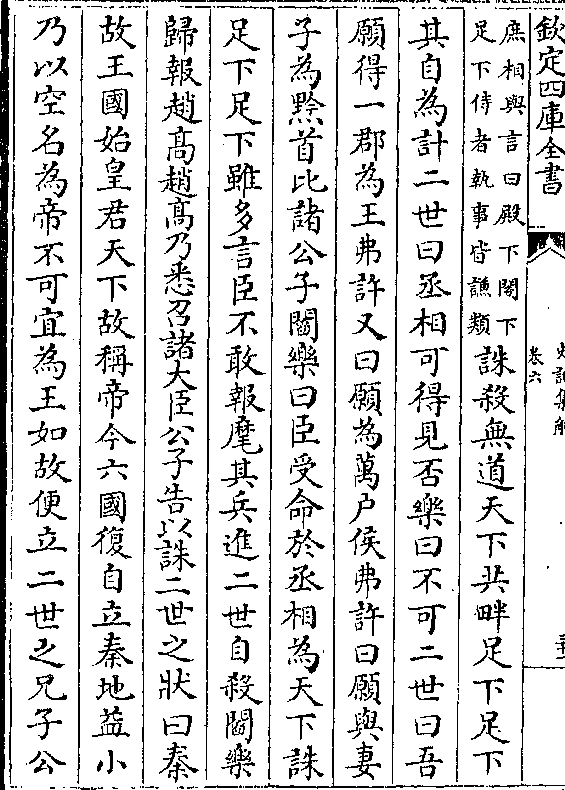 欽定四庫全書
史記集解
卷六
庶相與言曰殿下閤下
足下侍者執事皆謙類
誅殺無道天下共畔足下足下
其自為計二世曰丞相可得見否樂曰不可二世曰吾
願得一郡為王弗許又曰願為萬户侯弗許曰願與妻
子為黔首比諸公子閻樂曰臣受命於丞相為天下誅
足下足下雖多言臣不敢報麾其兵進二世自殺閻樂
歸報趙髙趙髙乃悉召諸大臣公子告以誅二世之狀曰秦
故王國始皇君天下故稱帝今六國復自立秦地益小
乃以空名為帝不可宜為王如故便立二世之兄子公